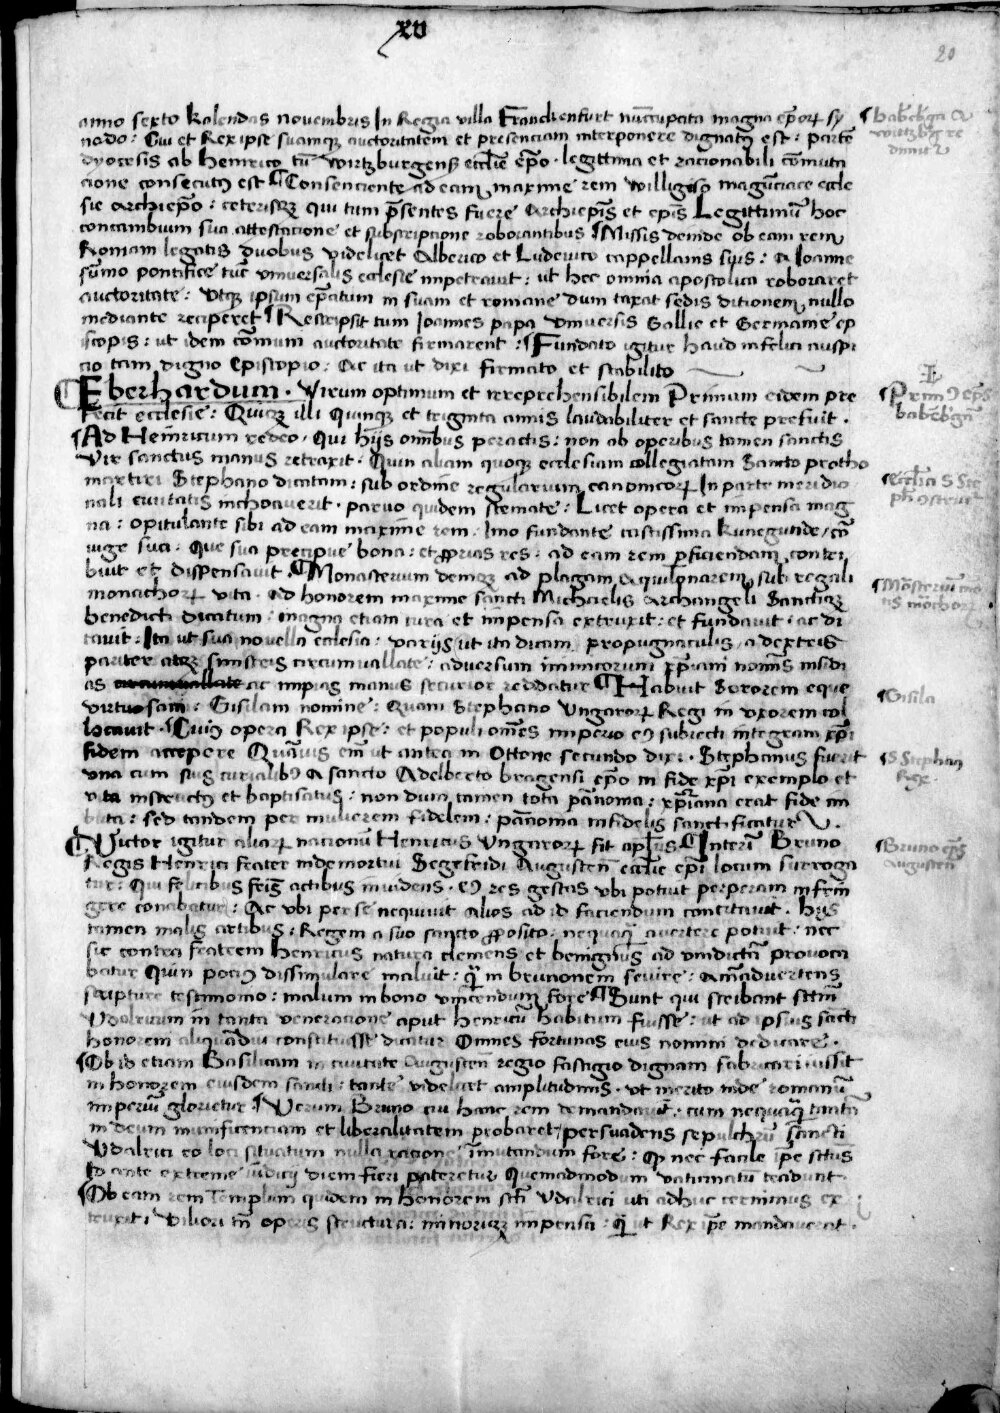 xv
20
anno sexto kalendas novembris In Regia villa Franckenfurt nūcupata magna ep̄orꝝ sy
nodo : Cui et Rex ipse suamqꝫ auctoritatem et presenciam interponere dignatꝰ est : partē
dyocesis ab Henrico tūc wirtzburgensꝭ eccłie ep̄o · legittima et racionabili cōmuta
cione consecutꝰ est ¶ Consenciente ad eam maxime rem willigiso magūciace eccle
sie Archiep̄o : ceterisqꝫ qui tum p̄sentes fuere Archiep̄is et ep̄is Legittimū hoc
concambium sua attestacione et subscriptione roborantibus ¶ Missis deinde ob eam rem
Romam legatis duobus videlicet Alberico et Ludevico cappellanis suis : a Ioanne
sūmo pontifice tūc vniversalis ecclesie impetravit : ut hec omnia apostolica roboraret
auctoritate : vtqꝫ ipsum ep̄atum in suam et romane dum taxat sedis ditionem nullo
mediante reciperet ¶ Rescripsit tum Ioannes papa vniversis Gallie et Germanie ep
iscopis : ut idem cōmuni auctoritate firmarent : ¶ Fundato igitur haud infelici auspi
cio tam digno Episcopio : Ac ita ut dixi firmato et stabilito
¶ Eberhardum · Virum optimum et irreprehensibilem Primum eidem pre
fecit ecclesie : Quiqꝫ illi Quinqꝫ et triginta annis laudabiliter et sancte prefuit ·
¶ Ad Heinricum redeo · Qui hijs omībus peractis : non ab operibus tamen sanctis
vir sanctus manus retraxit · Quin aliam quoqꝫ ecclesiam collegiatam Sancto protho
martiri Stephano dicatam : sub ordine regularium canonicorꝝ In parte meridio
nali civitatis inchoaverit · parvo quidem stemate : Licet opera et impensa mag
na : opitulante sibi ad eam maxime rem · Imo fundante castissima kunegunde / cō
iuge sua : Que sua precipue bona : et ꝓprias res : ad eam rem ꝑficiendam contri
buit et dispensavit · ¶ Monasterium deniqꝫ ad plagam Aquilonarem sub regali
monachorꝝ vita · ad honorem maxime sancti Michaelis Archangeli Sanctiqꝫ
benedicti dicatum : magna etiam cura et impensa extruxit : et fundavit : ac di
tavit : Ita ut sua novella ecclesia : varijs ut ita dicam propugnaculis / a dextris
pariter atqꝫ sinistris circumvallate : adversum inimicorum xp̄iani nomīs insidi
as circumvallate ac impias manus securior reddatur ¶ Habuit Sororem eque
virtuosam : Gisilam nomine : Quam Stephano Vngarorꝝ Regi in vxorem col
locavit · ¶ Cuiꝰ opera Rex ipse : et populi omēs imperio eiꝰ subiecti integram xp̄i
fidem accepere Quāvis em̄ ut antea in Ottone secundo dixi · Stephanus fuerit
vna cum suis curialibꝰ a sancto Adelberto bragensi ep̄o in fide xp̄i exemplo et
vita instructꝰ et baptisatus : non dum tamen tota pānonia : xp̄iana erat fide im
buta : sed tandem per mulierem fidelem : panonia infidelis sanctificatur
¶ Victor igitur aliarꝝ nacionū Henricus Vngarorꝝ fit ap̄lus ¶ Interī Bruno
Regis Henrici frater inde mortui Segefridi Augusteñ eccłie ep̄i locum surroga
tur : Qui felicibus frīs actibus invidens · eiꝰ res gestas vbi potuit perperam infrin
gere conabatur : Ac vbi per se nequivit alios ad id faciendum concitavit · Hijs
tamen malis artibus : Regem a suo sancto ꝓposito : nequaqꝫ avertere potuit : nec
sic contra fratrem Henricus natura clemens et benignus ad vindictā provoca
batur Quin pociꝰ dissimulare maluit : qͣ̄ in brunonem sevire : Animadvertens
scripture testimonio : malum in bono vincendum fore ¶ Sunt qui scribant sctm̄
Vdalricum in tanta veneracione aput Henricū habitum fuisse : ut ad ipsius sacti
honorem aliquādiu constituisse dicatur Omnes fortunas eius nomini dedicare ·
¶ Ob id etiam Basilicam in civitate Augusteñ regio fastigio dignam fabricari iussit
in honorem eiusdem sancti : tante videlicet amplitudinis · vt merito inde romanū
imperiū glorietur ¶ Verum Bruno cui hanc rem demandavit · cum nequaqͣ̄ tantā
in deum munificenciam et liberalitatem probaret / persuadens sepulchrū sancti
Vdalrici eo loci situatum nulla racione īmutandum fore : Qꝫ nec facile ip̄e sctūs
Id ante extreme iudicij diem fieri pateretur Quemadmodum vaticinatū tradunt
¶ Ob eam rem Templum quidem in honorem scti Vdalrici uti adhuc cernimus ex
truxit · Viliori tn̄ operis structura : minoriqꝫ impensa : qͣ̄ ut Rex ip̄e mandaverat ·
¶ babēbꝰga &
wirtzbꝰg re
dimitꝰ
I
¶ Primꝰ ep̄s
babēbꝰgñ
¶ Ecclīa S Ste
phī ꝯstruitꝰ
¶ Monsteriū mo
tis mōchorꝝ
¶ Gisila
¶ S Stephanꝰ
Rex ·
¶ Bruno ep̄s
Augusteñ